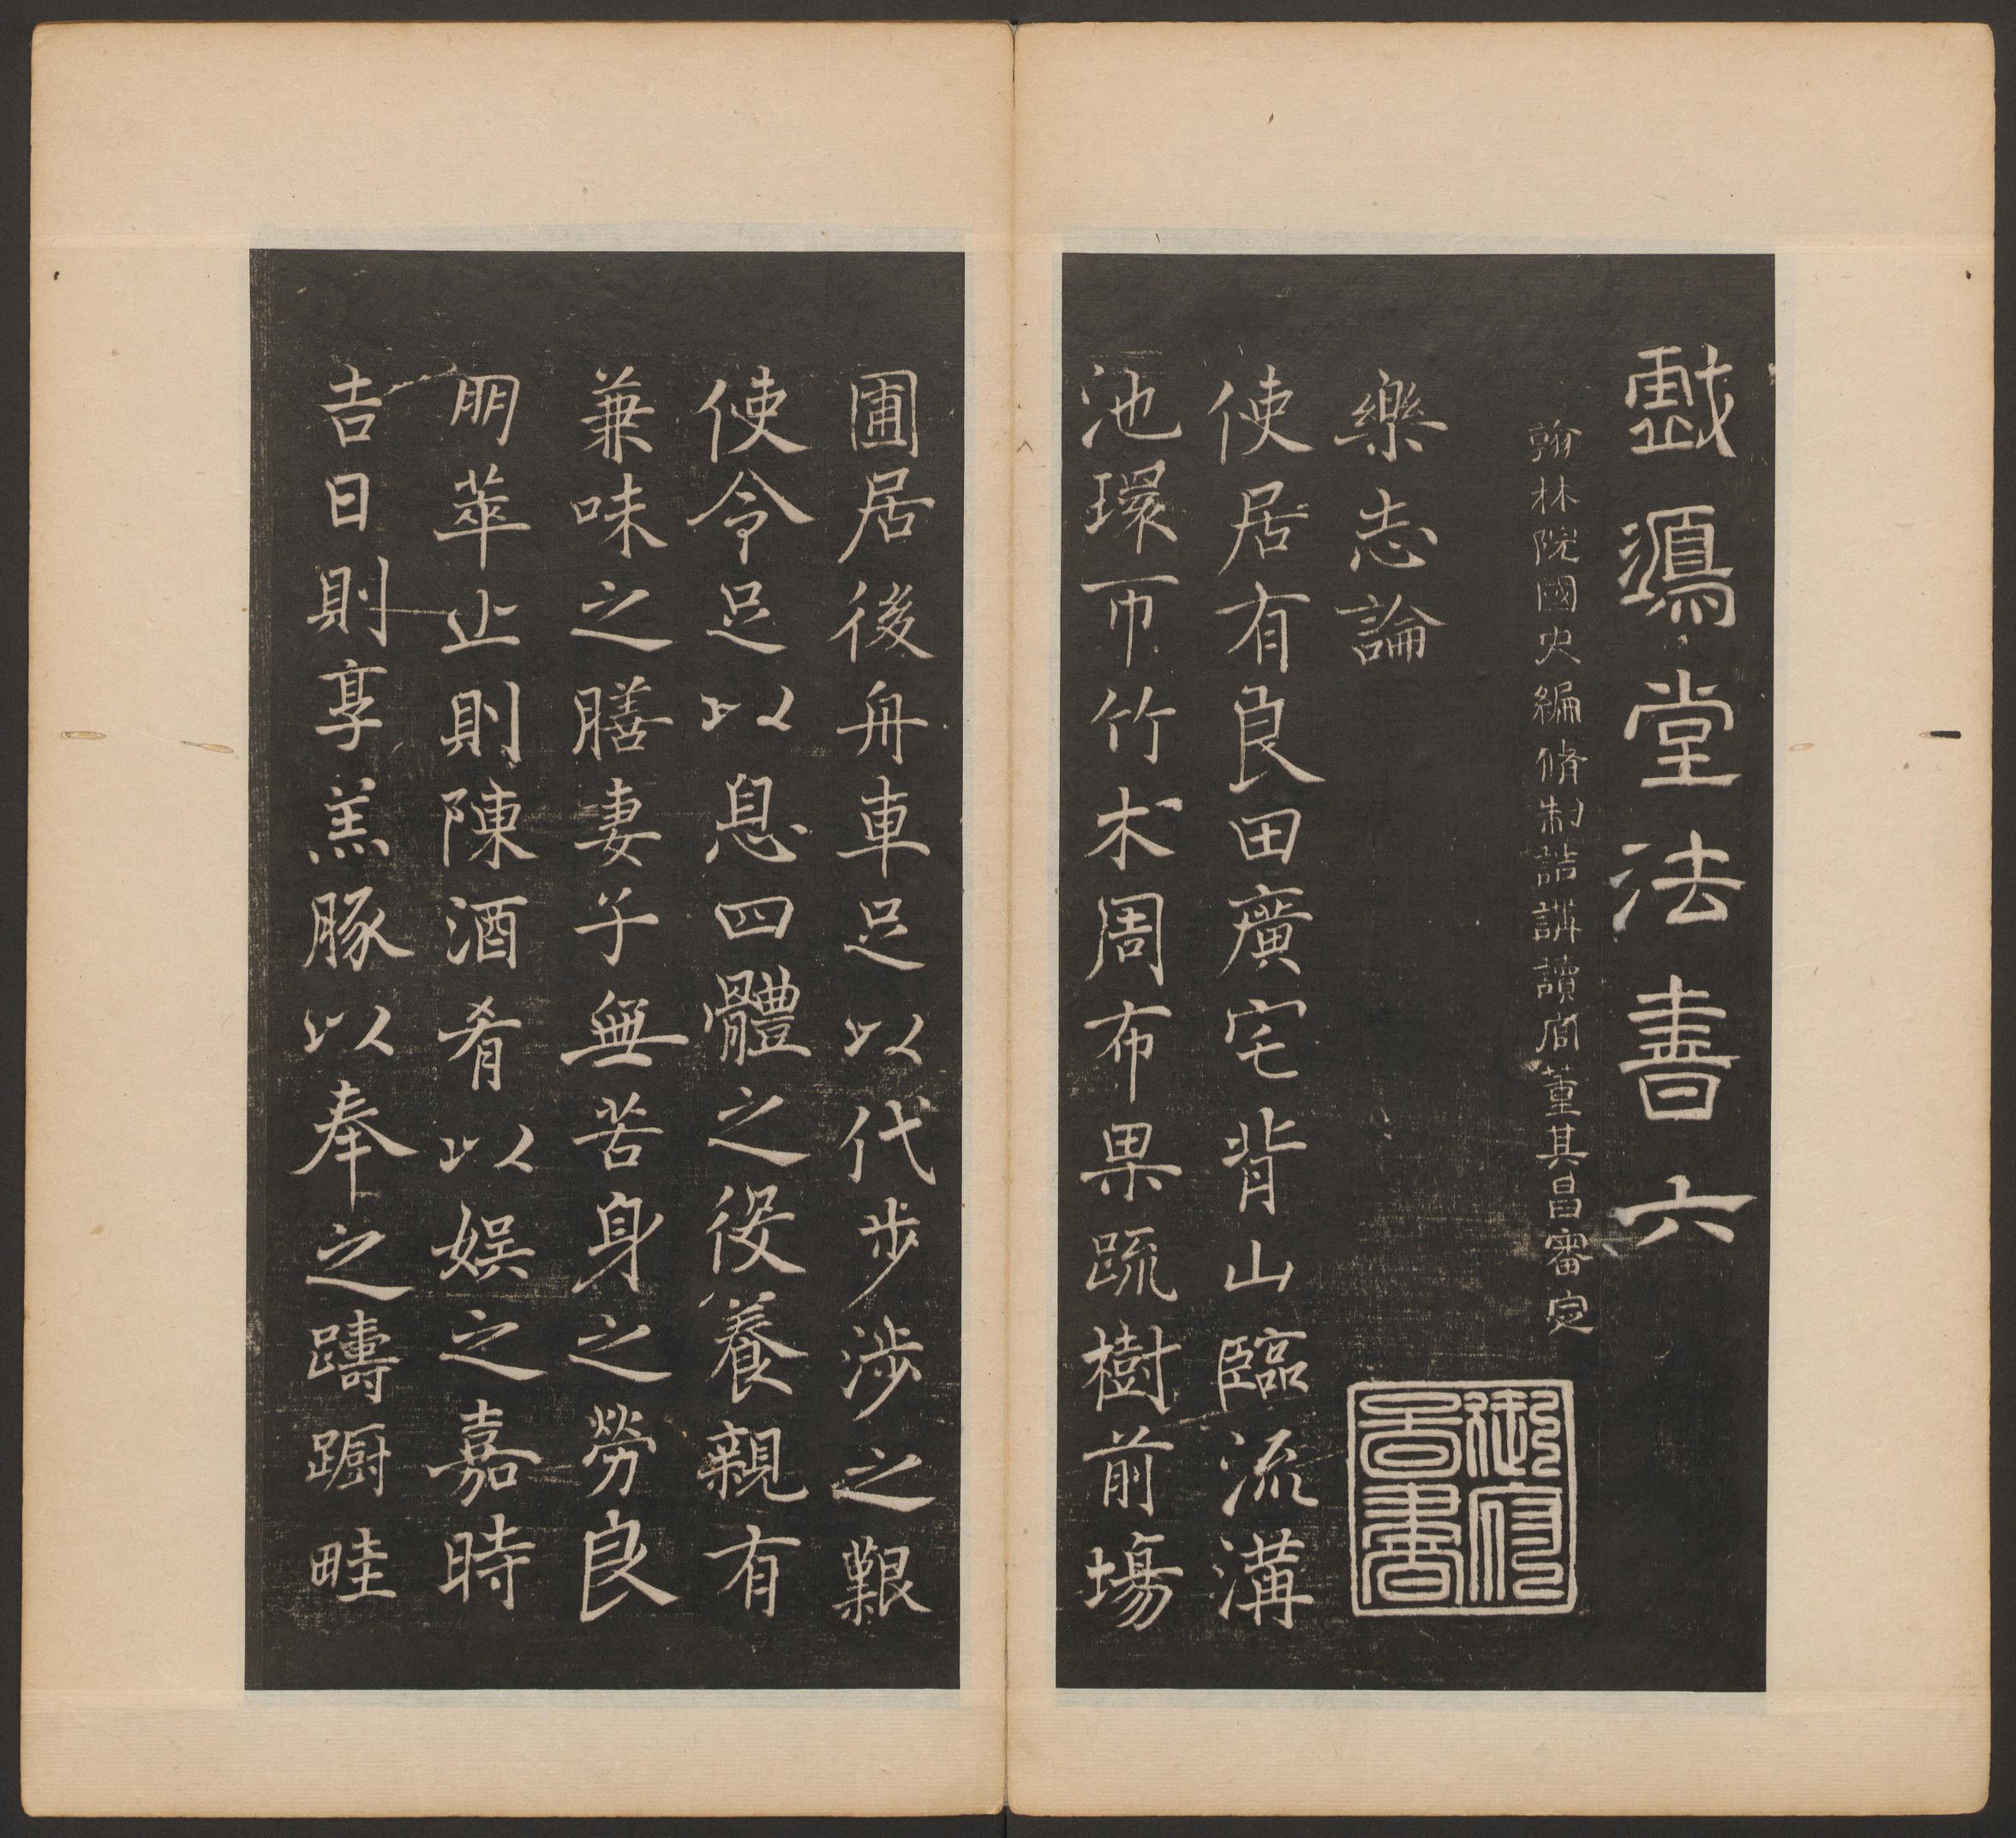 戲鴻堂法書六
翰林院國史編脩制誥講讀官董其昌審定
御府圖書
樂志論
使居有良田廣宅背山臨流溝
池環帀竹木周布果疏樹前場
圃居後舟車足以代步涉之艱
使令足以息四體之役養親有
兼味之膳妻子無苦身之勞良
朋萃止則陳酒肴以娛之嘉時
吉日則享羔豚以奉之躊躕畦